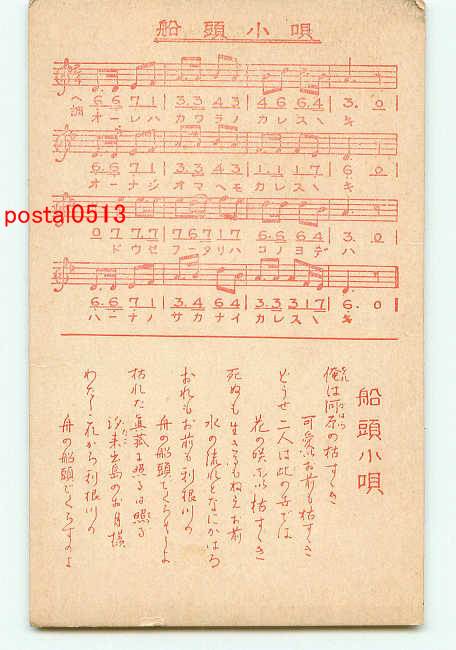 船頭小唄
ヘ調
6.6 7 1 | 3.3 4 3 | 4 6 6.4 | 3. 0
オーレハ カワラノ カレスヽ キ
6.6 7 1 | 3.3 4 3 | 1.1 1 7 | 6. 0
オーナジ オマヘモ カレスヽ キ
postal0513
0 7 7.7 | 7 6 7 1 | 6.6 6 4 | 3. 0
ドウセ フータリハ コノヨデ ハ
6.6 7 1 | 3.4 6 4 | 3.3 3 1 7 | 6. 0
ハーナノ サカナイ カレスヽ キ
船頭小唄
俺は河原の枯すゝき
可愛いお前も枯すゝき
どうせ二人は此の世では
花の咲ない枯すゝき
死ぬも生きるもねえお前
水の流れとなにかはろ
おれもお前も利根川の
舟の船頭でくらそうよ
枯れた真菰に照る
潮来出島のお月様
わたしこれから利根川の
舟の船頭でくらすのよ